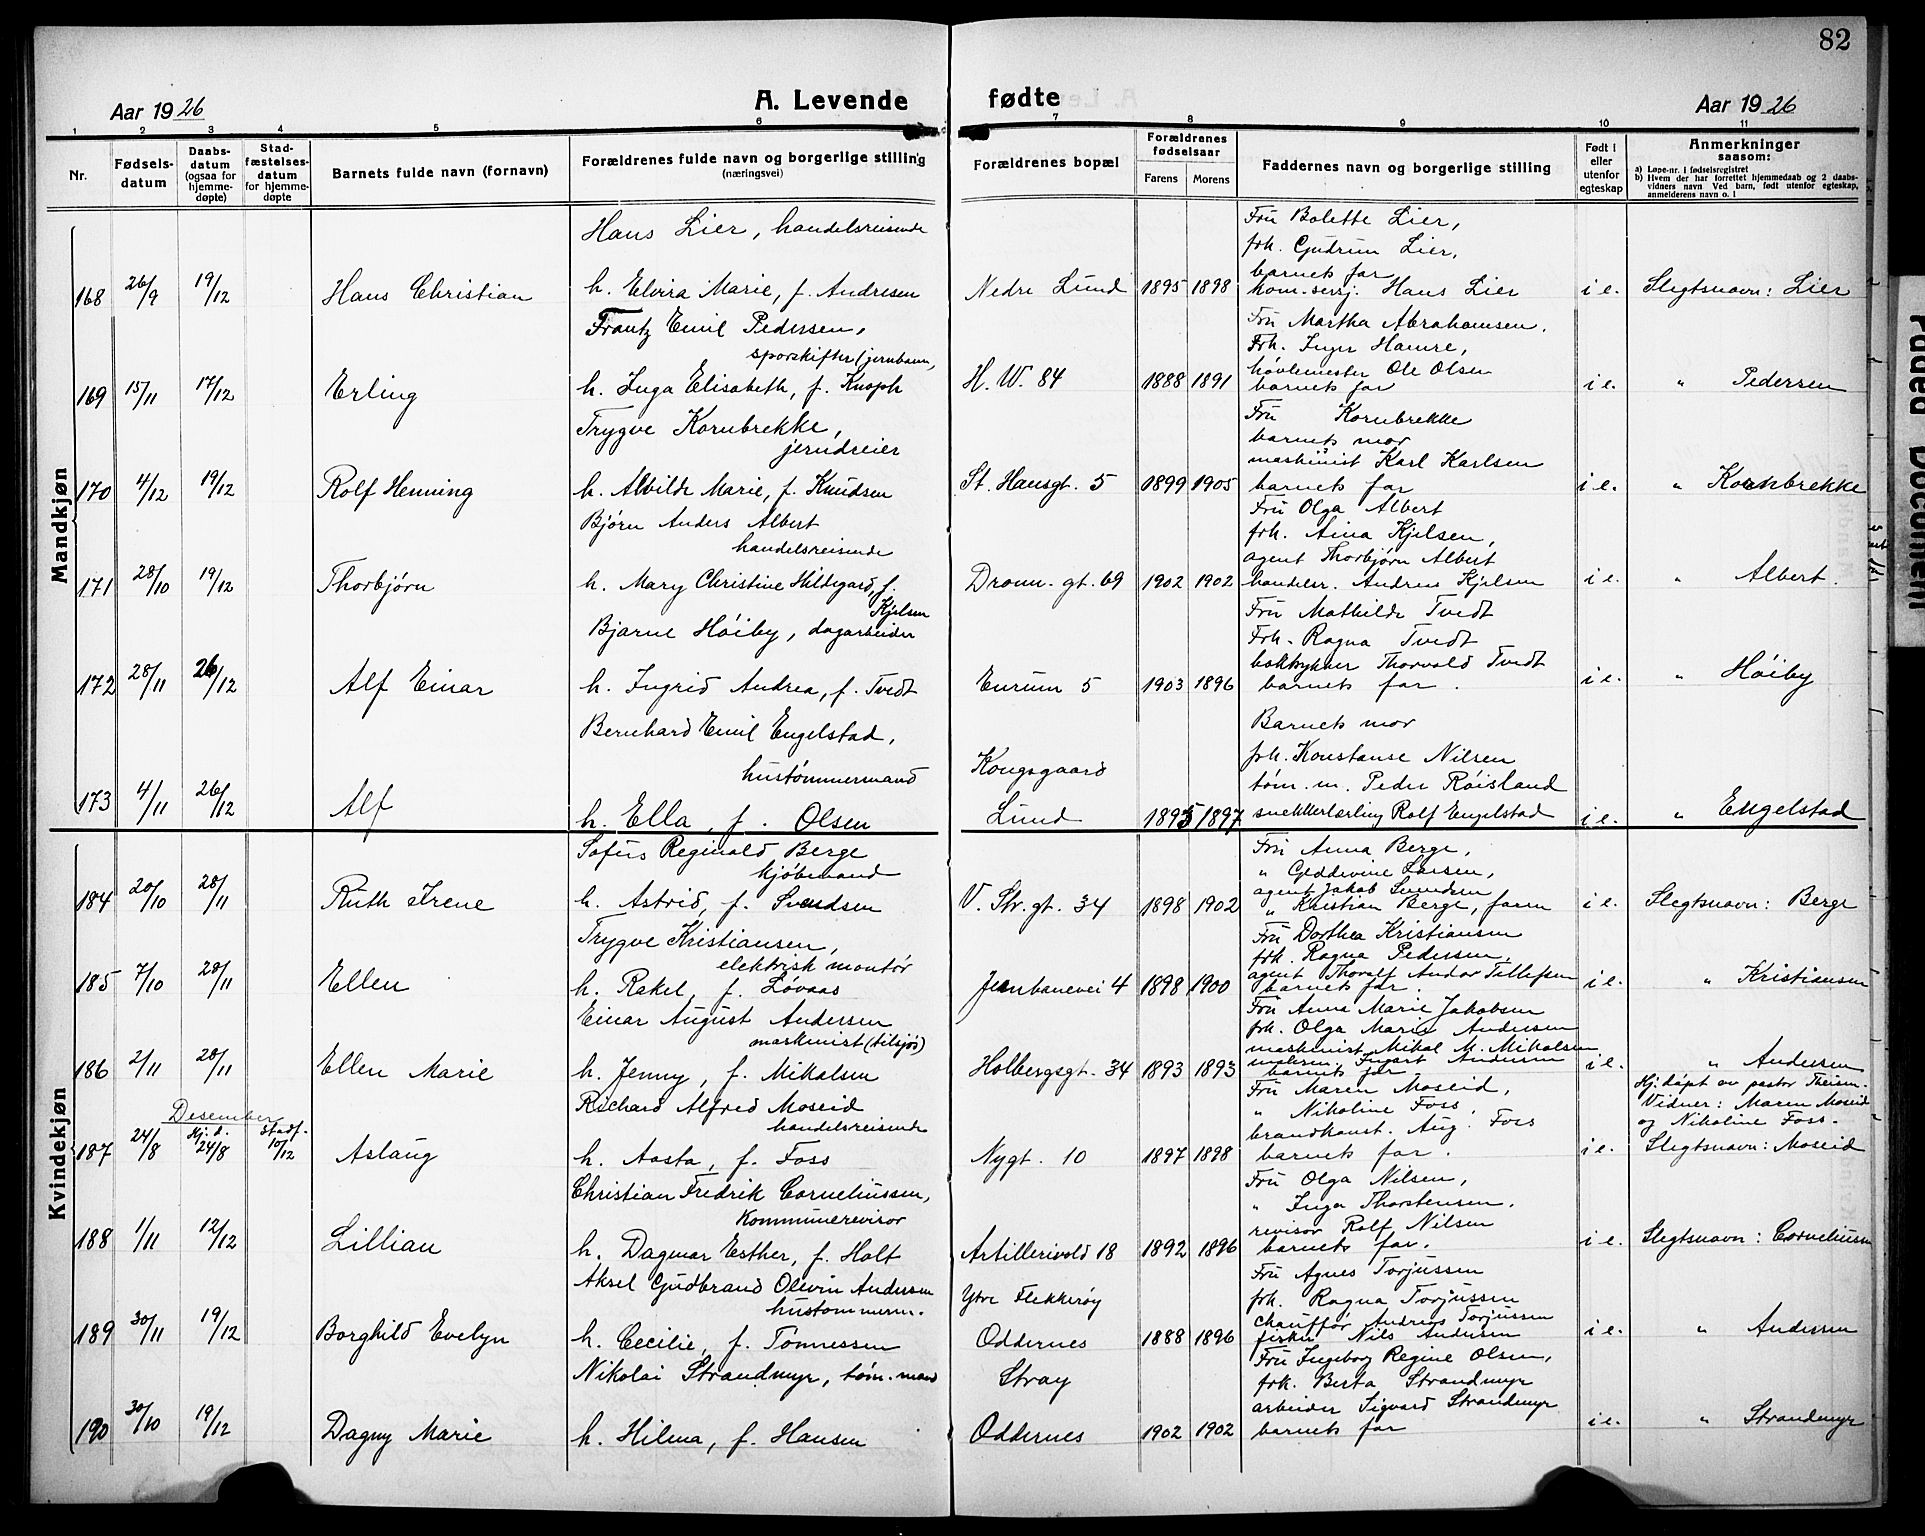 82
Aar 1926
A. Levende fødte
Aar 1926
1 2 3 4 5 6 7 8 9 10 11
Nr.
Fødsels-
datum
Daabs-
datum
(ogsaa for
hjemme-
døpte)
Stad-
fæstelses-
datum
for hjemme-
døpte
Barnets fulde navn (fornavn)
Forældrenes fulde navn og borgerlige stilling
(næringsvei)
Forældrenes bopæl
Forældrenes
fødselsaar
Farens Morens
Faddernes navn og borgerlige stilling
Født i
eller
utenfor
egteskap
Anmerkninger
saasom:
a) Løpe-nr. i fødselsregistret
b) Hvem der har forrettet hjemmedaab og 2 daabs-
vidners navn Ved barn, født utenfor egteskap,
anmelderens navn o. l
Mandkjøn
168 26/9 19/12 Hans Christian
Hans Lier, handelsreisende
h. Elvira Marie, f. Andresen
Nedre Lund 1895 1898
Fru Bolette Lier,
frk. Gudrun Lier,
barnets far
kom. serg. Hans Lier
i e. Slegtsnavn: Lier
169 15/11 17/12 Erling
Frantz Emil Pedersen,
sporskifter (jernbanen,
h. Inga Elisabeth, f. Knoph
H. W. 84 1888 1891
Fru Martha Abrahamsen.
Frk. Inger Hamre,
høvlemester Ole Olsen
barnets far
i e. " Pedersen
170 4/12 19/12 Rolf Henning
Trygve Kornbrekke,
jerndreier
h. Albilde Marie, f. Knudsen
St. Hansgt. 5 1899 1905
Fru Kornbrekke
barnets mor
maskinist Karl Karlsen
barnets far
i e. " Kornbrekke
171 28/10 19/12 Thorbjørn
Bjørn Anders Albert
handelsreisende
h. Mary Christine Hildegard, f.
Kjelsen
Dronn. gt. 69 1902 1902
Fru Olga Albert
frk. Aina Kjelsen,
agent Thorbjørn Albert
handelsr. Andreas Kjelsen
i e. " Albert.
172 28/11 26/12 Alf Einar
Bjarne Høiby, dagarbeider
h. Ingrid Andrea, f. Tvedt
Enrum 5 1903 1896
Fru Mathilde Tvedt
Frk. Ragna Tvedt
boktrykker Thorvald Tvedt
barnets far.
i e. " Høiby
173 4/11 26/12 Alf
Bernhard Emil Engelstad,
hustømmermand
h. Ella, f. Olsen
Kongsgaard
Lund 1895 1897
Barnets mor
frk. Konstanse Nilsen
tøm. m. Peder Røisland
snekkerlærling Rolf Engelstad
i e. " Engelstad
Kvindekjøn
184 20/10 28/11 Ruth Irene
Sofus Reginald Berge
kjøbmand
h. Astrid, f. Svendsen
V. Str. gt. 34 1898 1902
Fru Anna Berge,
" Larsen,
agent Jakob
" Kristian Berge, faren
i e. Slegtsnavn: Berge
185 7/10 28/11 Ellen
Trygve Kristiansen,
elektrisk montør
h. Rakel, f. Løvaas
Jernbanevei 4 1898 1900
Fru Dorthea Kristiansen
frk. Ragna Pedersen,
agent Thoralf Andor Tellefsen
barnets far.
i e. " Kristiansen
186 2/11 28/11 Ellen Marie
Einar August Andersen
maskinist (tilsjøs)
h. Jenny, f. Mikalsen
Holbergsgt. 34 1893 1893
Fru Anna Marie Jakobsen
frk. Olga Marie Andersen
maskinist Mikal M. Mikalsen
Andersen
barnets far
i e. " Andersen
Desember
187 24/8 Hj. d. 24/8 Stadf. 10/12 Aslaug
Richard Alfred Moseid
handelsreisende
h. Aasta, f. Foss
Nygt. 10 1897 1898
Fru Maren Moseid,
" Nikoline Foss,
brandkonst. Aug. Foss
barnets far.
i e.
Hj. døpt av pastor
Vidner: Maren Moseid
og Nikoline Foss.
Slegtsnavn: Moseid
188 1/11 12/12 Lillian
Christian Fredrik Corneliussen,
Kommunerevisor
h. Dagmar Esther, f. Holt
Artillerivold 18 1892 1896
Fru Olga Nilsen,
" Inga Thorstensen.
revisor Rolf Nilsen
barnets far.
i e. Slegtsnavn: Corneliussen
189 30/11 19/12 Borghild Evelyn
Aksel Gudbrand Olevin Andersen
hustømmerm.
h. Cecilie, f. Tønnessen
Ytre Flekkerøy
Oddernes 1888 1896
Fru Agnes Torjussen
frk. Ragna Torjussen
chauffør Andreas Torjussen
fisker Nils Andersen
i e. " Andersen
190 30/10 19/12 Dagny Marie
Nikolai Strandmyr, tøm. mand
h. Hilma, f. Hansen
Stray
Oddernes 1902 1902
Fru Ingeborg Regine Olsen,
frk. Berta Strandmyr
arbeider Sigvard Strandmyr
barnets far
i e. " Strandmyr